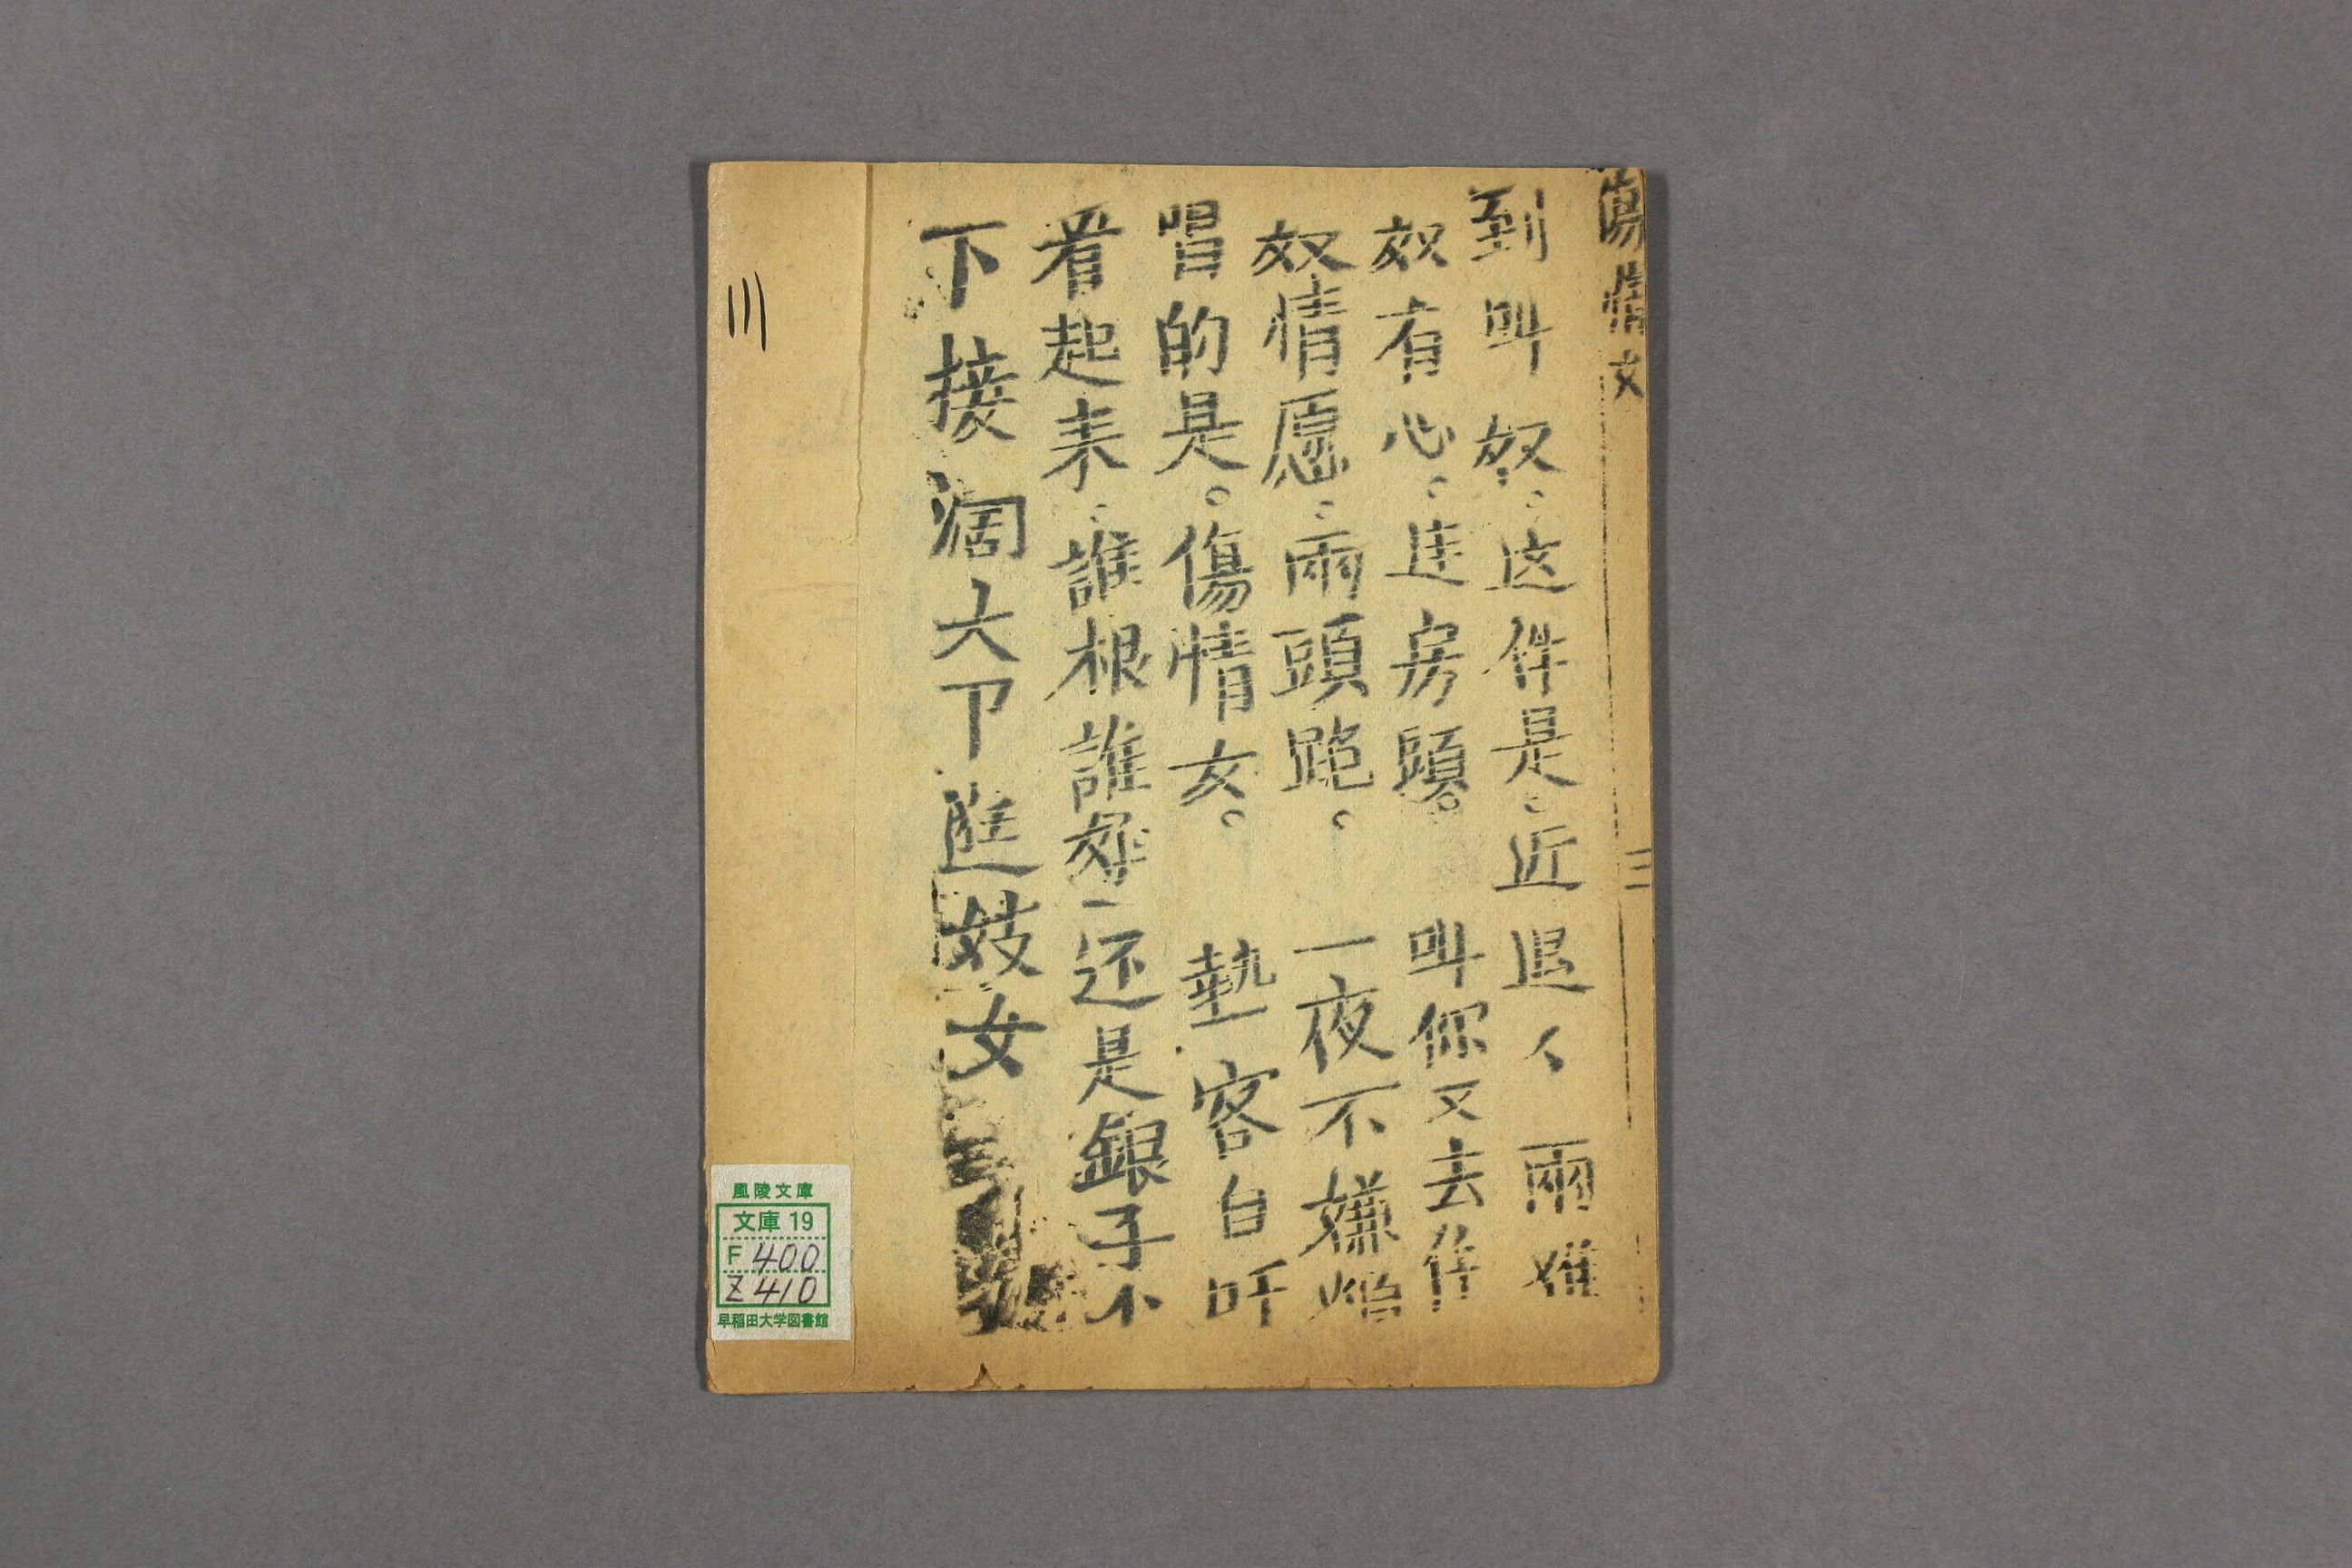 傷情女
三
到叫奴。这件是。近退人 兩难
奴有心。進房頭。 叫你又去作
奴情愿。兩頭跑。 一夜不嫌
唱的是。傷情女。 墊客自
看起来。誰根誰 还是銀子不
下接濶大 進妓女
川
風陵文庫
文庫 19
F 400
Z 410
早稲田大学図書館